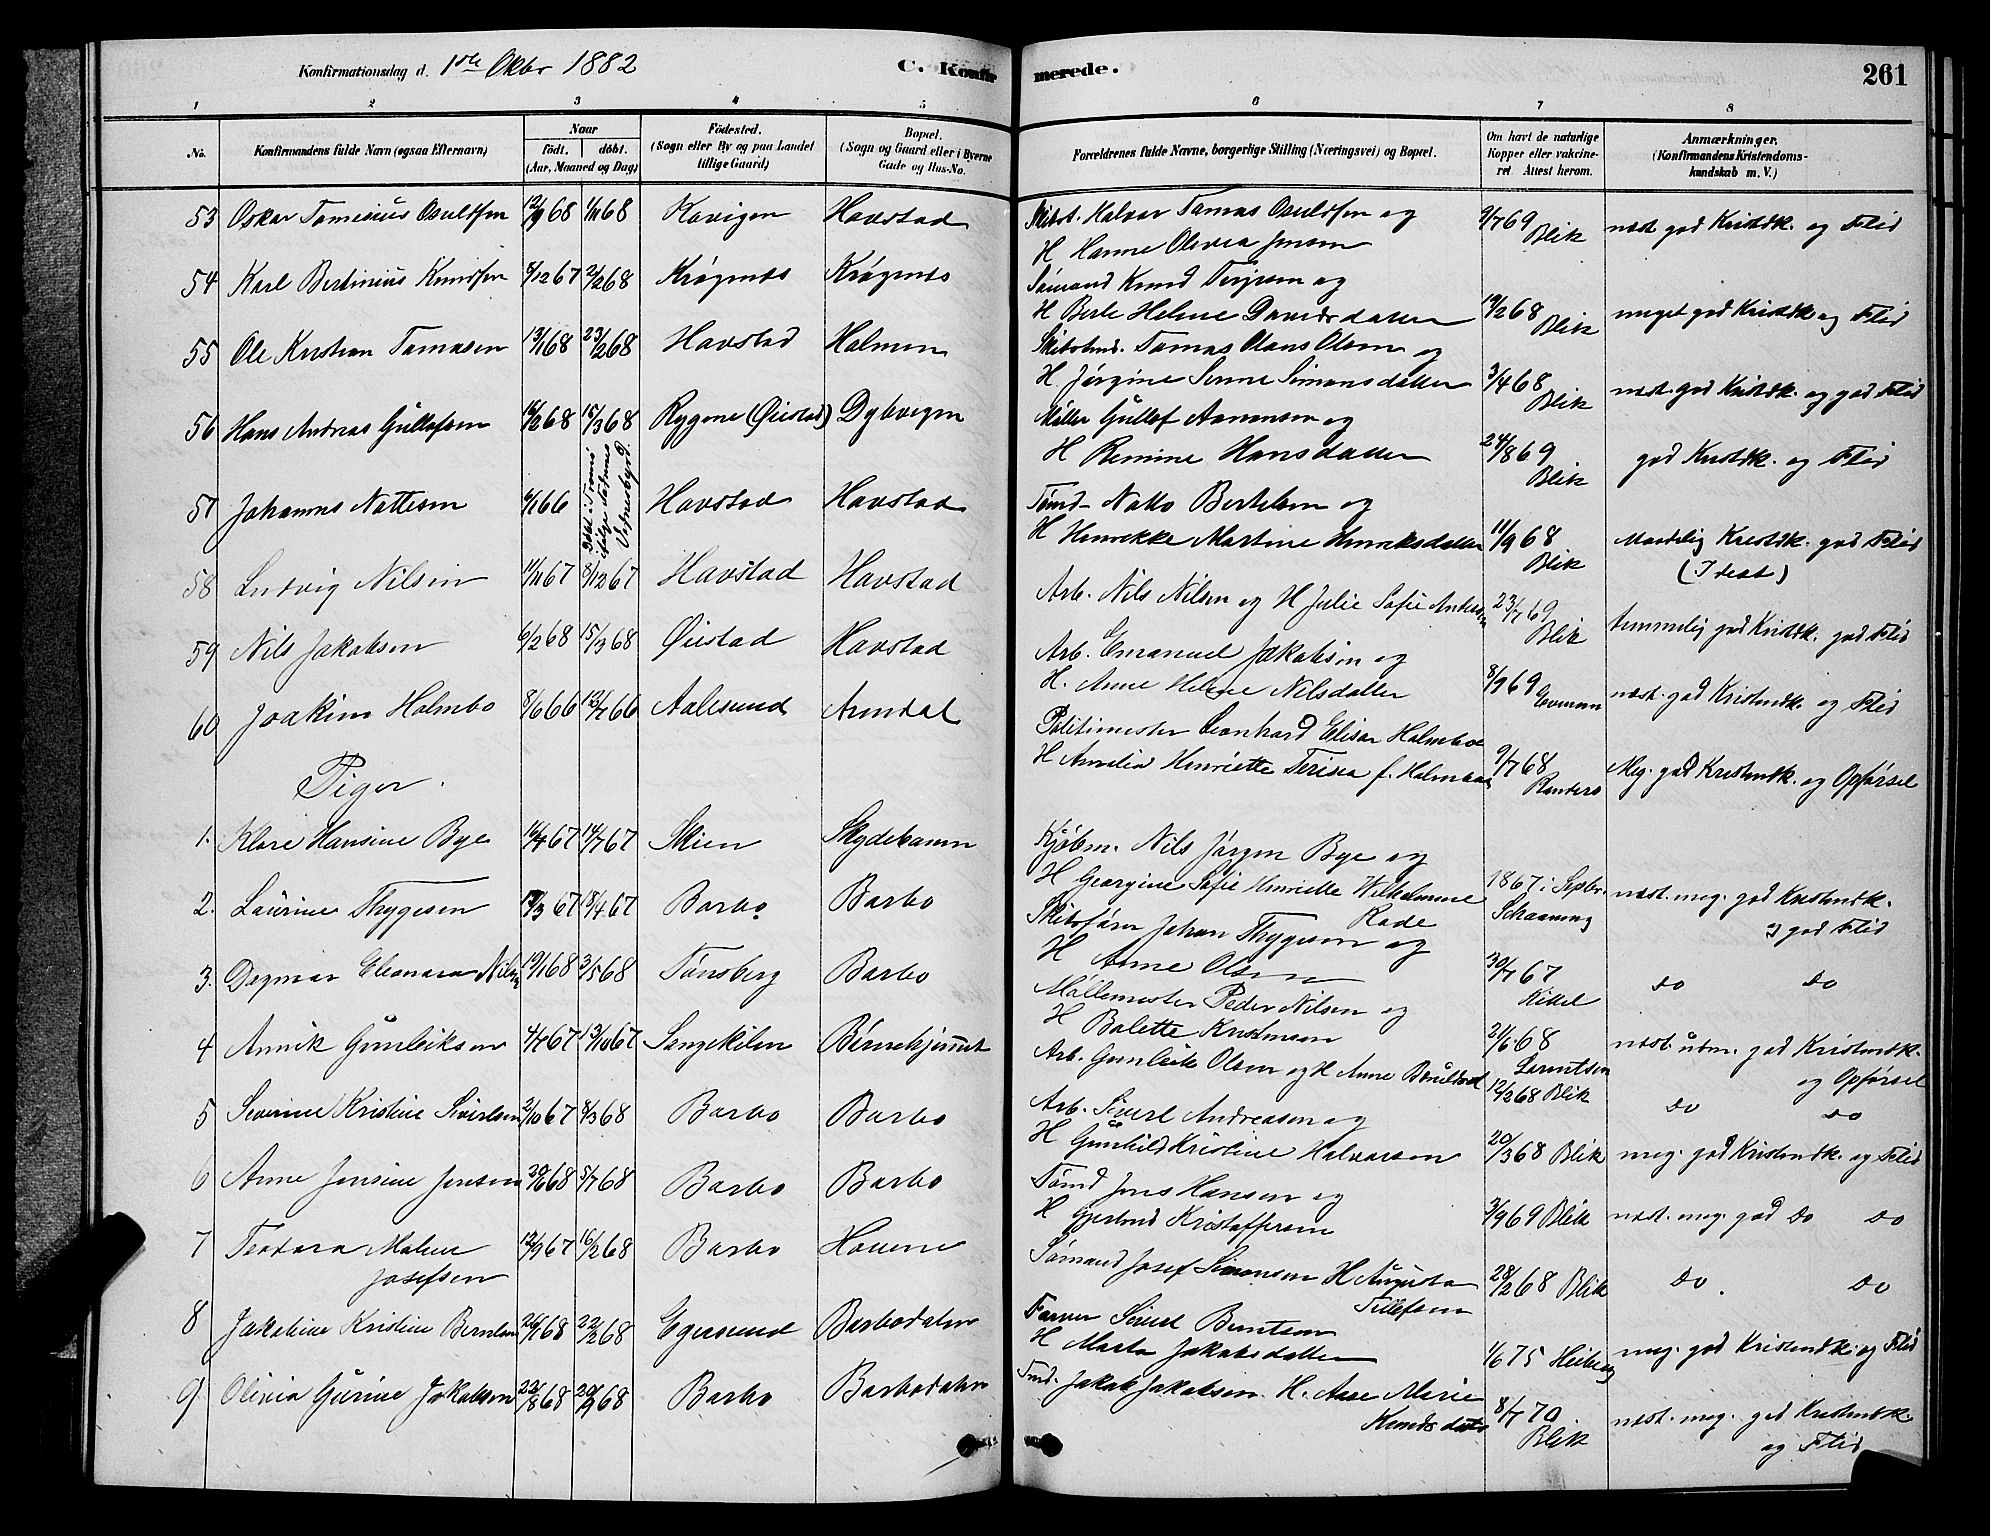 Konfirmationsdag d. 1ste Oktbr 1882
C. Konfirmerede.
261
1 2 3 4 5 6 7 8
No.
Konfirmandens fulde Navn (ogsaa Efternavn)
Naar
födt. döbt.
(Aar, Maaned og Dag)
Födested.
(Sogn eller By og paa Landet
tillige Gaard)
Bopæl.
(Sogn og Gaard eller i Byerne
Gade og Hus-No.
Forældrenes fulde Navne, borgerlige Stilling (Næringsvei) og Bopæl.
Om havt de naturlige
Kopper eller vakcine-
ret. Attest herom.
Anmærkninger.
(Konfirmandens Kristendoms-
kundskab m. V.)
53 Oskar Tomenius Osuldsen 12/9 68 1/11 68 Kavigen Havstad Skibst. Halvor Tomas Osuldsen og 9/7 69 næst. god Kristdk. og Flid
H Hanne Olivia Jensen Blik
54 Karl Bertinius Knudsen 8/12 67 2/2 68 Krøgenes Krøgenes Sømand Knud Terjesen og
H Berte Helene Davidsdatter 19/2 68 Blik meget god Kristdk og Flid
55 Ole Kristian Tomasen 13/1 68 23/2 68 Havstad Holmen Skibstmd. Tomas Olaus Olsen og
H. Jørgine Severine Simonsdatter 3/4 68 Blik næst. god Kristdk. og god Flid
56 Hans Andreas Gullofsen 16/2 68 15/3 68 Rygene (Øiestad) Dybvigen Møller Gullof Aanonsen og
H Remine Hansdatter 24/8 69 Blik god Kristdk. og Flid
57 Johannes Nattesen 6/1 66 Døbt i Tromø ifølge Havstad Havstad Tømd. Natto Bertelsen og
H Henrikke Martine Henriksdatter 11/9 68 Blik Maadelig Kristdk. god Flid
58 Ludvig Nilsen 11/11 67 8/12 67 Havstad Havstad Arb. Nils Nilsen og H Julie Sofie Andersen 23/7 69 Blik temmelig god Kristdk. god Flid
59 Nils Jakobsen 6/2 68 15/3 68 Øiestad Havstad Arb. Emanuel Jakobsen og
H. Anne Helene Nilsdatter 8/9 69 næst. god Kristendk. og Flid
60 Joakim Holmbo 8/6 66 12/7 66 Aalesund Arendal Politimester Leonhard Elisar Holmboe
H Amalia Henriette Terisea f. Holmboe 9/7 68 Randers Meg. god Kristendk. og Opførsel
Piger.
1. Klare Hansine Bye 16/4 67 14/7 67 Skien Skydebanen Kjøbm. Nils Jørgen Bye og
H Georgine Sofie Henriette Wilhelmine Rode 1867 i Sepbr. Schaaning næst. meg. god Kristendk. og god Flid
2. Laurine Thygesen 17/3 67 18/4 67 Barbo Barbo Skibsfører Johan Thygesen og
H Anne Olsen 30/7 67 Kittel do do
3. Dagmar Eleonora Nilsen 19/1 68 3/5 68 Tønsberg Barbo Møllemester Peder Nilsen og
H Bolette Kristensen 21/6 68 Lorentsen næst. udm. god Kristendk. og Opførsel
4 Annik Gunleiksen 4/7 67 13/10 67 Songekilen Børnehjemmet Arb. Gunleik Olsen og H Anne 12/2 68 Blik do do
5 Severine Kristine Sivertsen 2/10 67 8/3 68 Barbo Barbo Arb. Sivert Andreasen og
H Gunhild Kristine Halvorsen 20/3 68 Blik meg. god Kristendk. og Flid
6 Anne Jensine Jensen 20/6 68 5/7 68 Barbo Barbo Tømd Jens Hansen og
H Gjertrud Kristoffersen 3/9 69 Blik næst. meg. god do do
7 Teodora Malene Josefsen 12/9 67 16/2 68 Barbo Hovene Sømand Josef Simonsen H Augusta Tellefsen 28/2 68 Blik do. do
8 Jakobine Kristine Berntsen 26/1 68 22/2 68 Egersund Barbodalen Farver Sivert Berntsen
H Marta Jakobsdatter 1/6 75 Heiberg meg. god Kristendk. og Flid
9 Olivia Gurine Jakobsen 22/8 68 20/9 68 Barbo Barbodalen Tmd. Jakob Jakobsen. H. Aase Marie Knudsdatter 8/7 70 Blik næst. meg. god Kristendk. og Flid